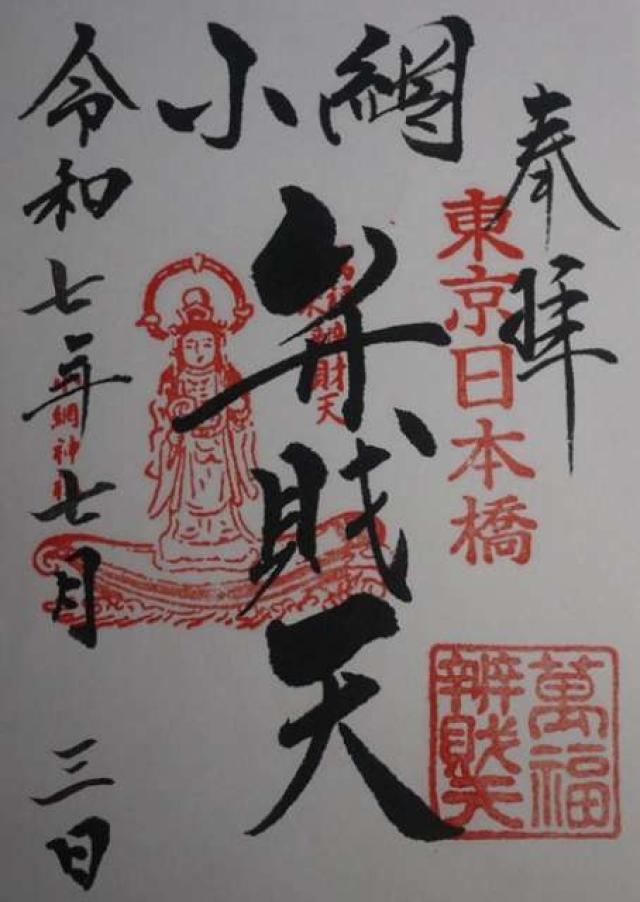 奉拝
東京日本橋
小網
弁財天
萬福
辨財天
小網神社
令和七年七月三日